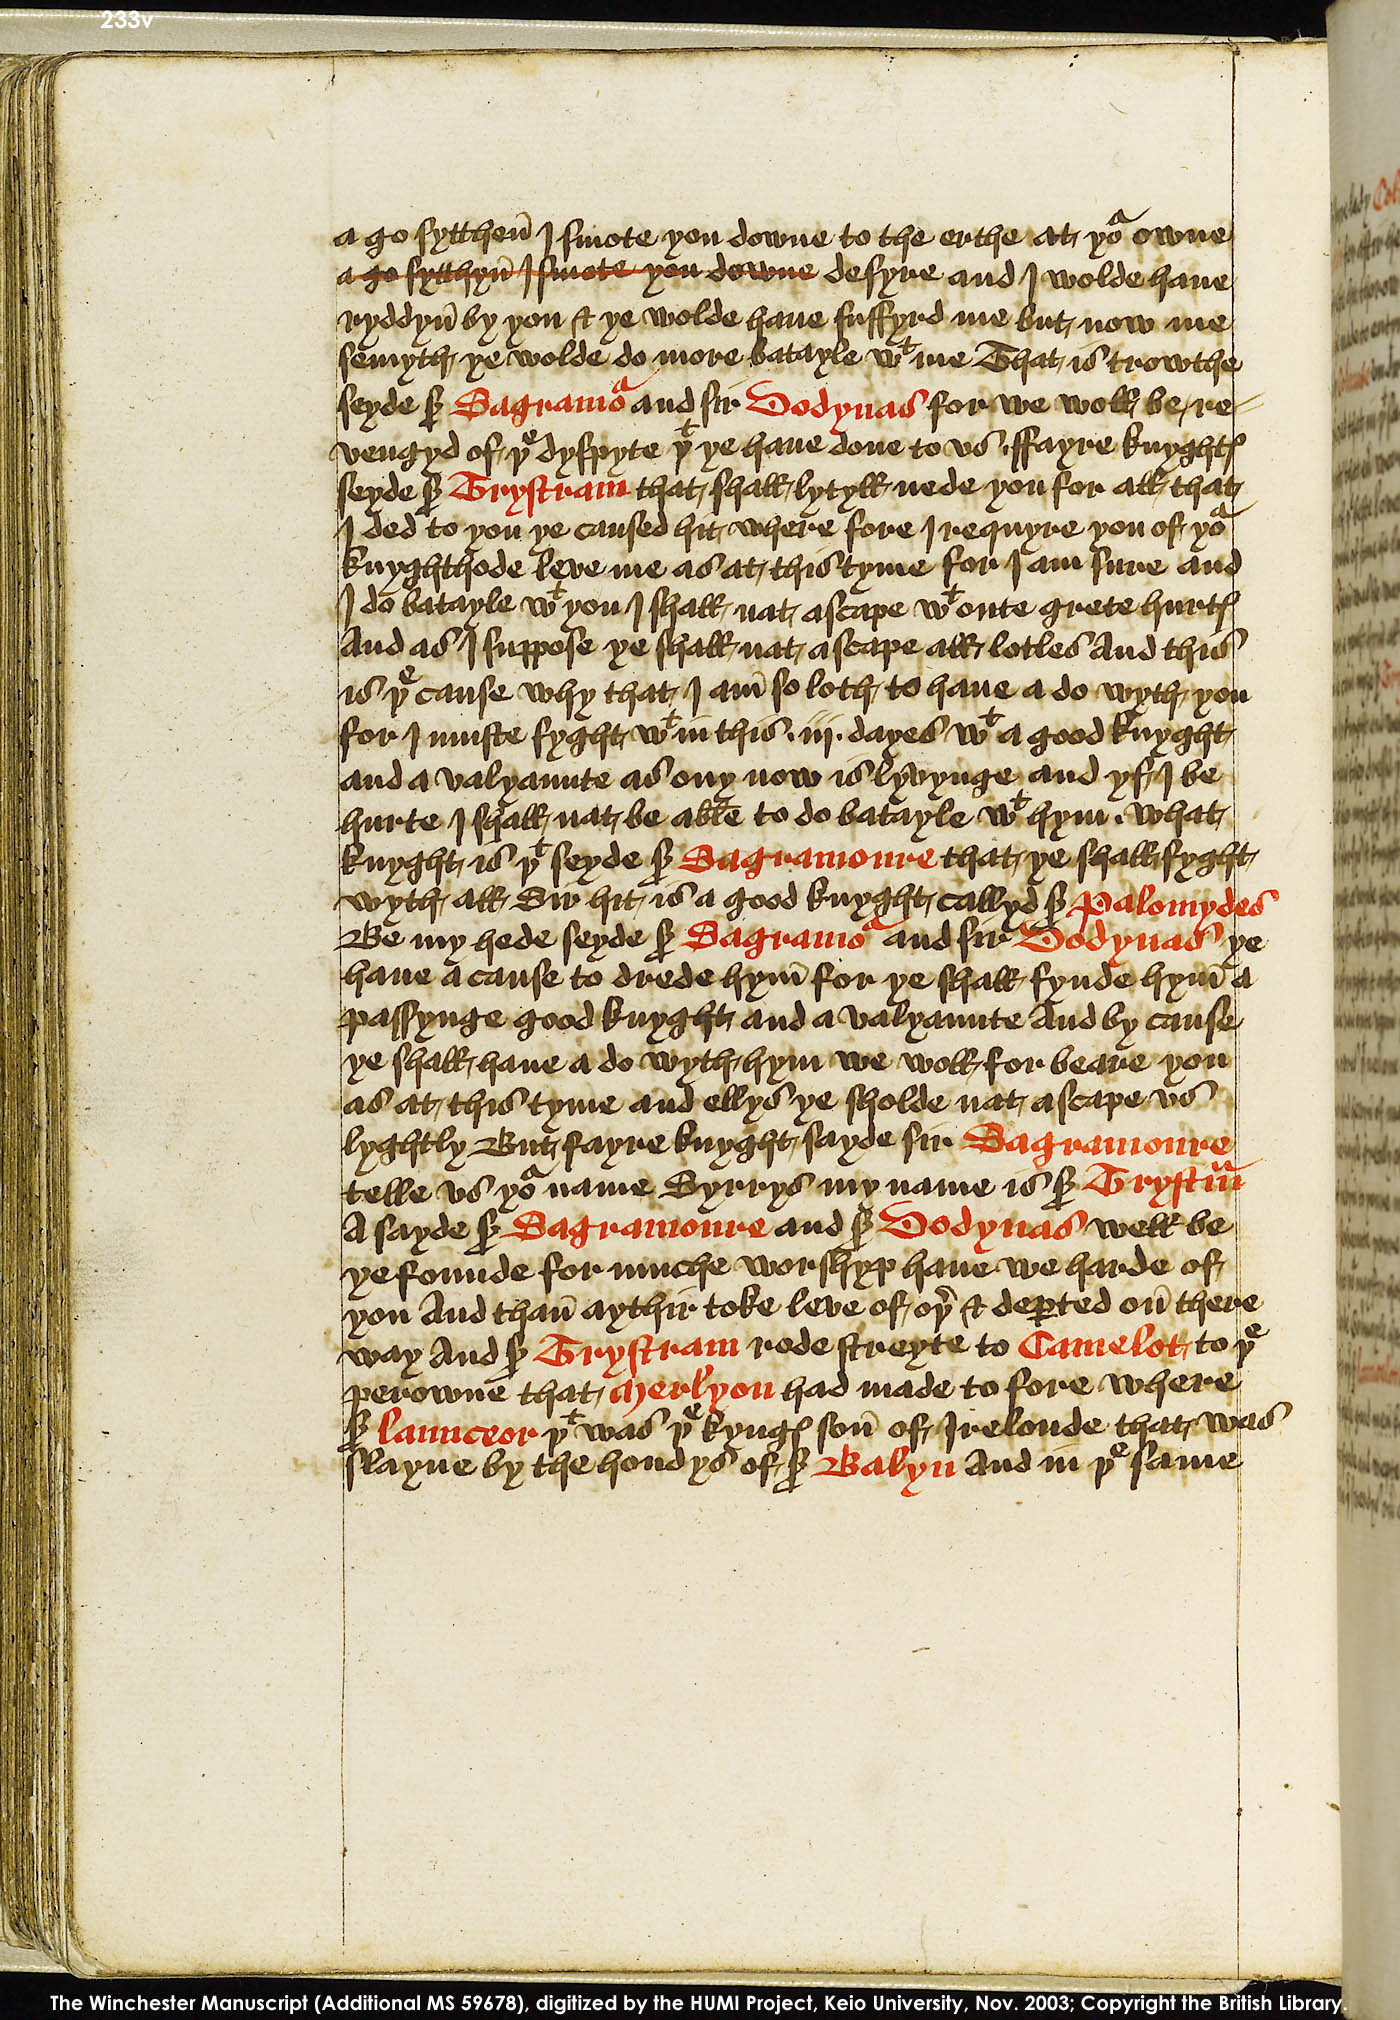 233v
a go sytthen̄ I smote you downe to the erthe at yoᵃ owne
a go sytthyn̄ I smote you downe desyre and I wolde haue
ryddyn̄ by you & ye wolde haue suffyrd me but now me
semyth ye wolde do more batayle wᵗ me That is trowthe
seyde sꝛ Sagramoᵃ and sir Dodynas for we woll be re-
vengyd of yᵉ dyspyte yᵗ ye haue done to vs . ffayre knyghtꝭ
seyde sꝛ Trystram that shall lytyll nede you for all that
I ded to you ye caused hit where fore I requyre you of yoᵃ
knyghthode leve me as at this tyme for I am sure and
I do batayle wᵗ you I shall nat ascape wᵗ oute grete hurtꝭ
And as I suppose ye shall nat ascape all lotles And this
is yᵉ cause why that I am̄ so loth to haue a do wyth you
for I muste fyght wᵗ in this .iij. dayes wᵗ a good knyght
and a valyaunte as ony now is lyvynge and yf I be
hurte I shall nat be able to do batayle wᵗ hym . what
knyght is yᵗ seyde sꝛ Sagramoure that ye shall fyght
wyth all Sir hit is a good knyght callyd sꝛ Palomydes
Be my hede seyde sꝛ Sagramoᵃ and sir Dodynas ye
haue a cause to drede hym̄ for ye shall fynde hym̄ a
passynge good knyght and a valyaunte And by cause
ye shall haue a do wyth hym we woll for beare you
as at this tyme and ellys ye sholde nat ascape vs
lyghtly But fayre knyght sayde sir Sagramoure
telle vs yoᵃ name Syrrys my name is sꝛ Trystrᵃm
A sayde sꝛ Sagramoure and sꝛ Dodynas well be
ye founde for muche worshyp haue we harde of
you And than̄ aythir toke leve of oyꝛ & deꝑted on̄ there
way And sꝛ Trystram rode streyte to Camelot to yᵉ
perowne that Merlyon had made to fore where
sꝛ launceor yᵗ was yᵉ kyngꝭ son̄ of Irelonde that was
slayne by the hondys of sꝛ Balyn And in yᵉ same
The Winchester Manuscript (Additional MS 59678), digitized by the HUMI Project, Keio University, Nov. 2003; Copyright the British Library.